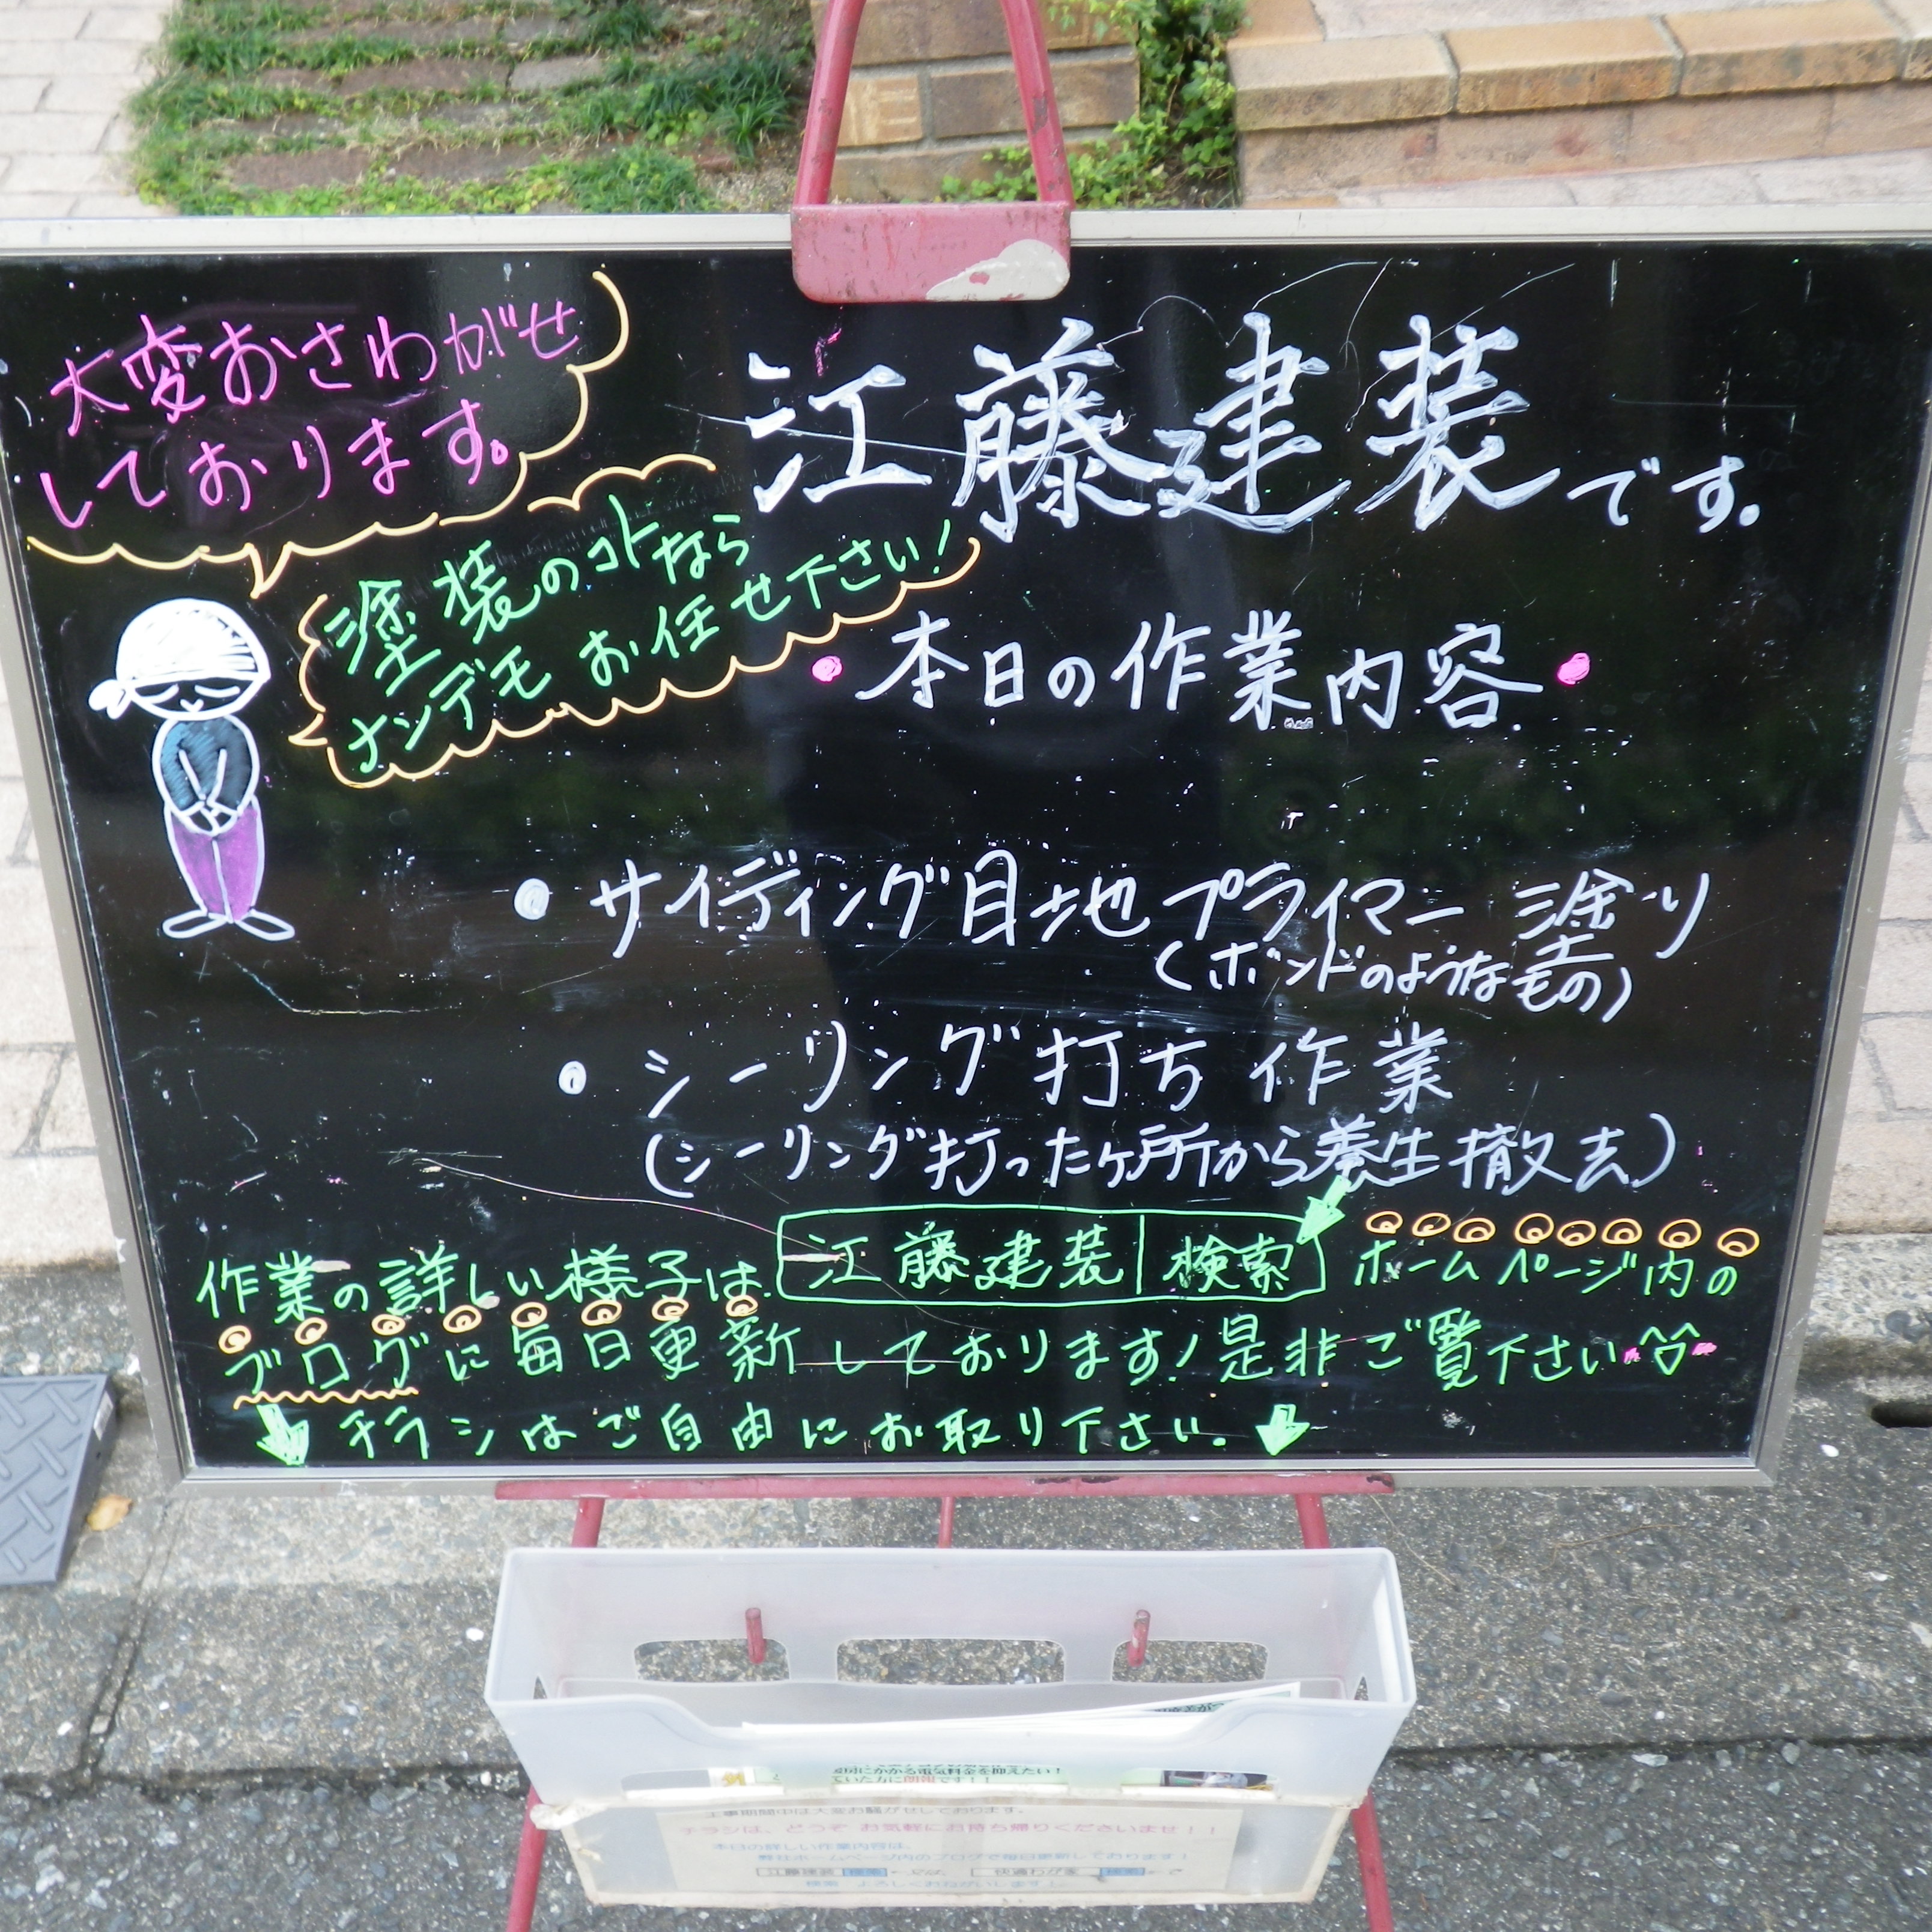 大変おさわがせ
しております。
江藤建装です。
塗装のコトなら
ナンデモお任せ下さい!
本日の作業内容
• サイディング目地 プライマー 塗り
(ボンドのようなもの)
• シーリング打ち作業
(シーリング打ったヶ所から養生撤去)
作業の詳しい様子は 江藤建装 検索 ホームページ内の
ブログに毎日更新しております!是非ご覧下さい^o^
チラシはご自由にお取り下さい。
にかかる電気料金を抑えたい!
ていた方に朗報です!!
工事期間中は大変お騒がせしております。
チラシは、どうぞ お気軽にお持ち帰りくださいませ!!
本日の詳しい作業内容は、
弊社ホームページ内のブログで毎日更新しております!
江藤建装 検索 快適わが家 検索
検索 よろしくおねがいします